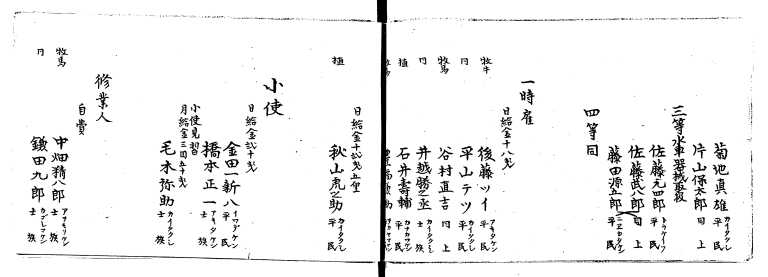 菊池真雄 カイタクシ 平民
片山保太郎 同上
三等水車器械取扱
佐藤元四郎 平民
佐藤武八郎 同上
藤田源五郎 平民
四等同
一時雇
日給金十八戔
牧牛 後藤ツイ 平民
牧馬 平山テツ カイタクシ 平民
同 谷村直吉 同上
同 井越勝之丞 カイタクシ 士族
植 石井壽輔 平民
日給金十弐戔五厘
植 秋山虎之助 カイタクシ 平民
小使
日給金弐十戔
金田一新八 イワテケン 平民
橋本正一 アオモリケン 士族
小使見習
月給金三円五十戔
毛木弥助 カイタクシ 平民
修業人
自費
牧馬 中畑精八郎 アオモリケン 士族
同 鎌田九郎 士族